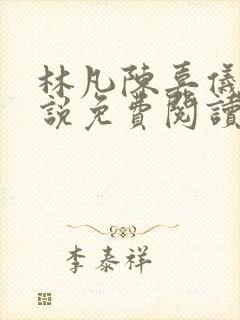 林凡陳嘉儀
説免費閱讀
李泰祥